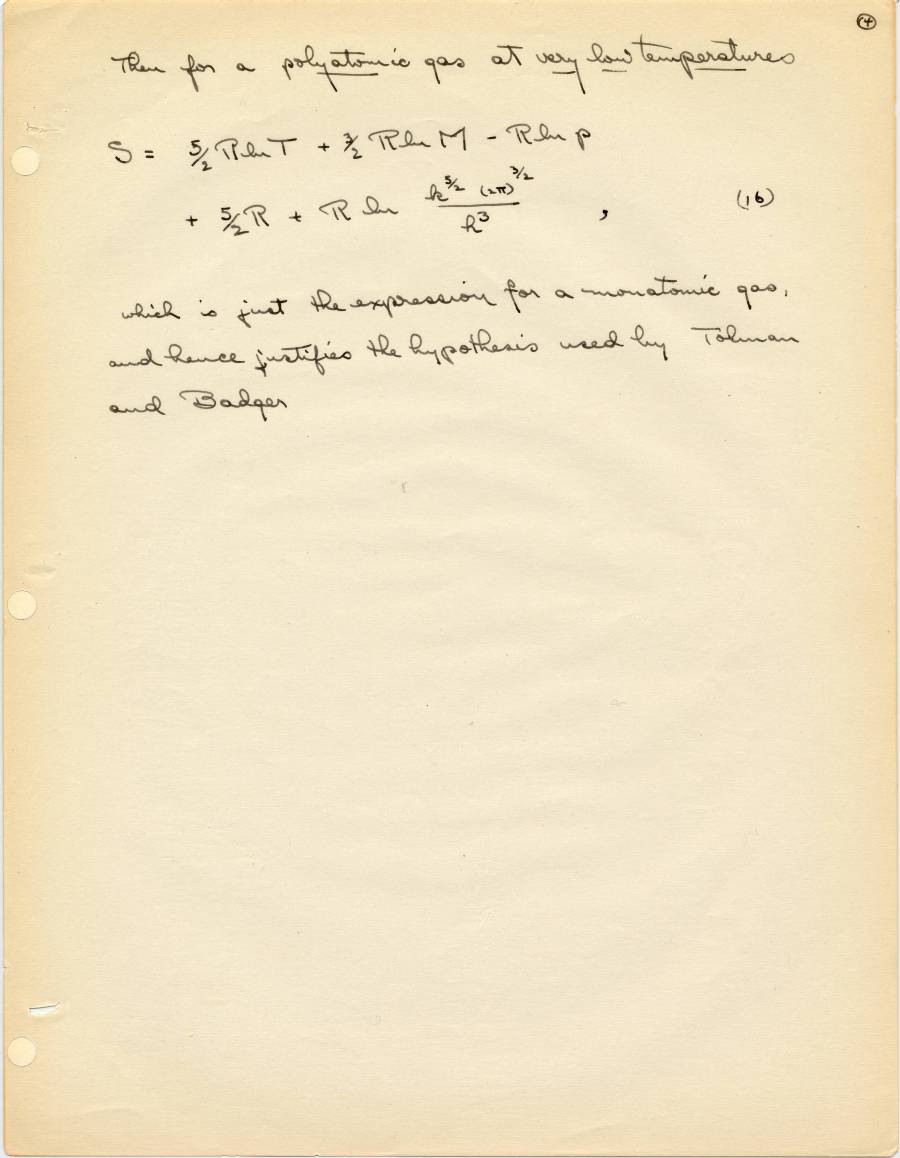 ④
Then for a polyatomic gas at very low temperatures
S = 5/2 R ln T + 3/2 R ln M - R ln p
+ 5/2 R + R ln k^5/2 (2π)^3/2 / h^3 , (16)
which is just the expression for a monatomic gas,
and hence justifies the hypothesis used by Tolman
and Badger